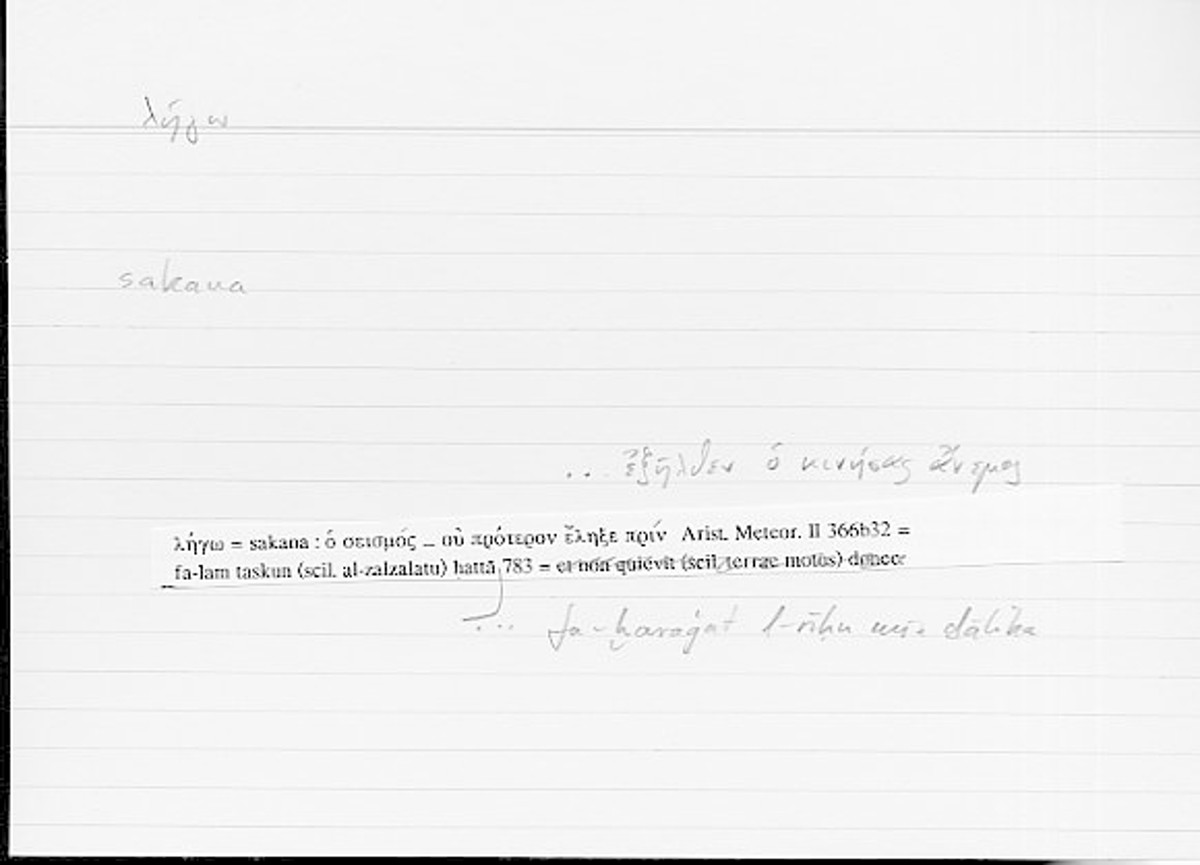 λήγω
sakana
... ἐξῆλθεν ὁ κινήσας ἄνεμος
λήγω = sakana : ὁ σεισμός _ οὐ πρότερον ἔληξε πρίν Arist. Meteor. II 366b32 =
fa-lam taskun (scil. al-zalzalatu) ḥattā 783 = et non quievit (scil. terrae motus) donec
... fa-ḫaraǧat l-rīḥu min ḏālika